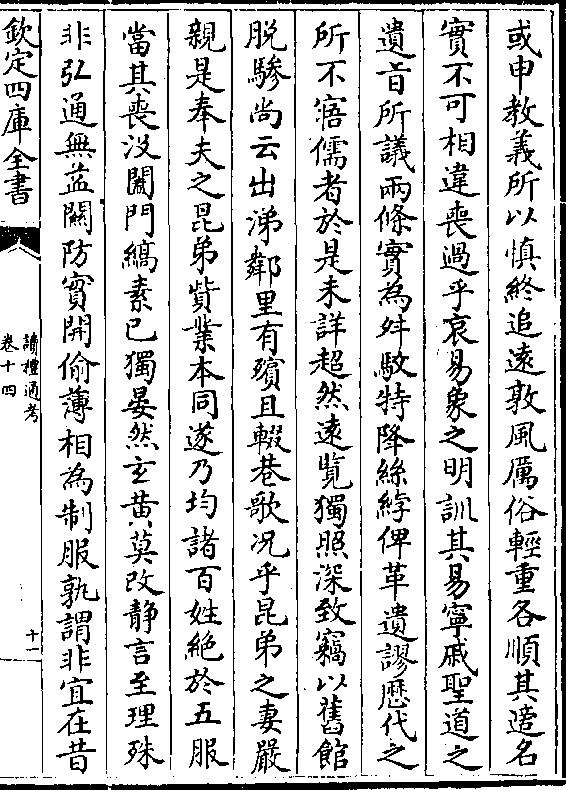 或申教義所以慎終追遠敦風厲俗輕重各順其適名
實不可相違喪過乎哀易象之明訓其易寧戚聖道之
遺旨所議兩條實為舛駮特降絲綍俾革遺謬歴代之
所不寤儒者於是未詳超然遠覽獨照深致竊以舊館
脱驂尚云出涕鄰里有殯且輟巷歌况乎昆弟之妻嚴
親是奉夫之昆弟貲業本同遂乃均諸百姓絶於五服
當其喪沒闔門縞素已獨晏然𤣥黄莫改靜言至理殊
非弘通無益關防實開偷薄相為制服孰謂非宜在昔
欽定四庫全書
讀禮通考
卷十四
十一